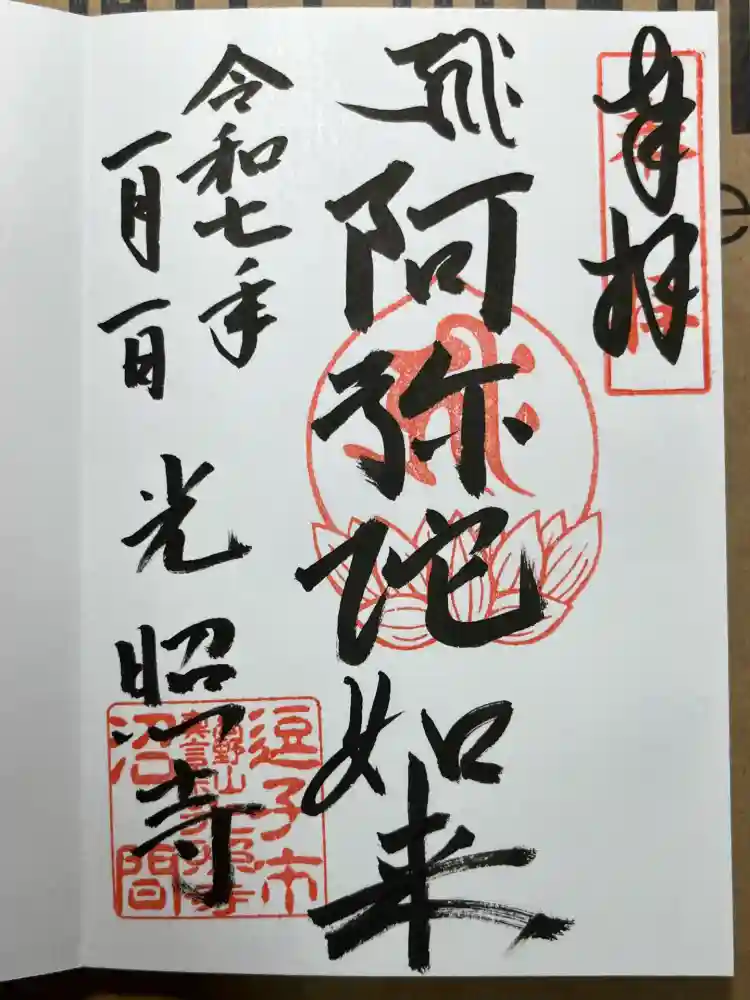 奉拝
奉拝
𑖮𑖿𑖨𑖱𑖾 阿弥陀如来
𑖮𑖿𑖨𑖱𑖾
令和七年
一月一日
光照寺
逗子市
高野山
真言宗光照寺
沼間